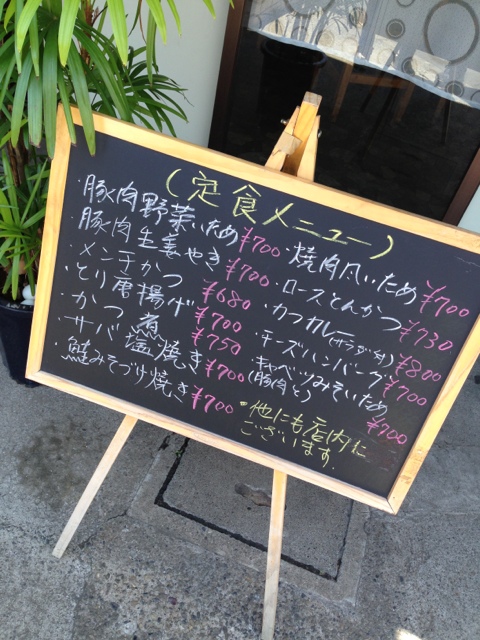 (定食メニュー)
・豚肉野菜いため ¥700
・豚肉生姜やき ¥700
・メンチかつ ¥680
・とり唐揚げ ¥700
・かつ煮 ¥750
・サバ塩焼き ¥700
・鮭みそづけ焼き ¥700
・焼肉風いため ¥700
・ロースとんかつ ¥730
・カツカレー(サラダ付) ¥800
・チーズハンバーグ ¥700
・キャベツみそいため
(豚肉と) ¥700
*他にも店内に
ございます.